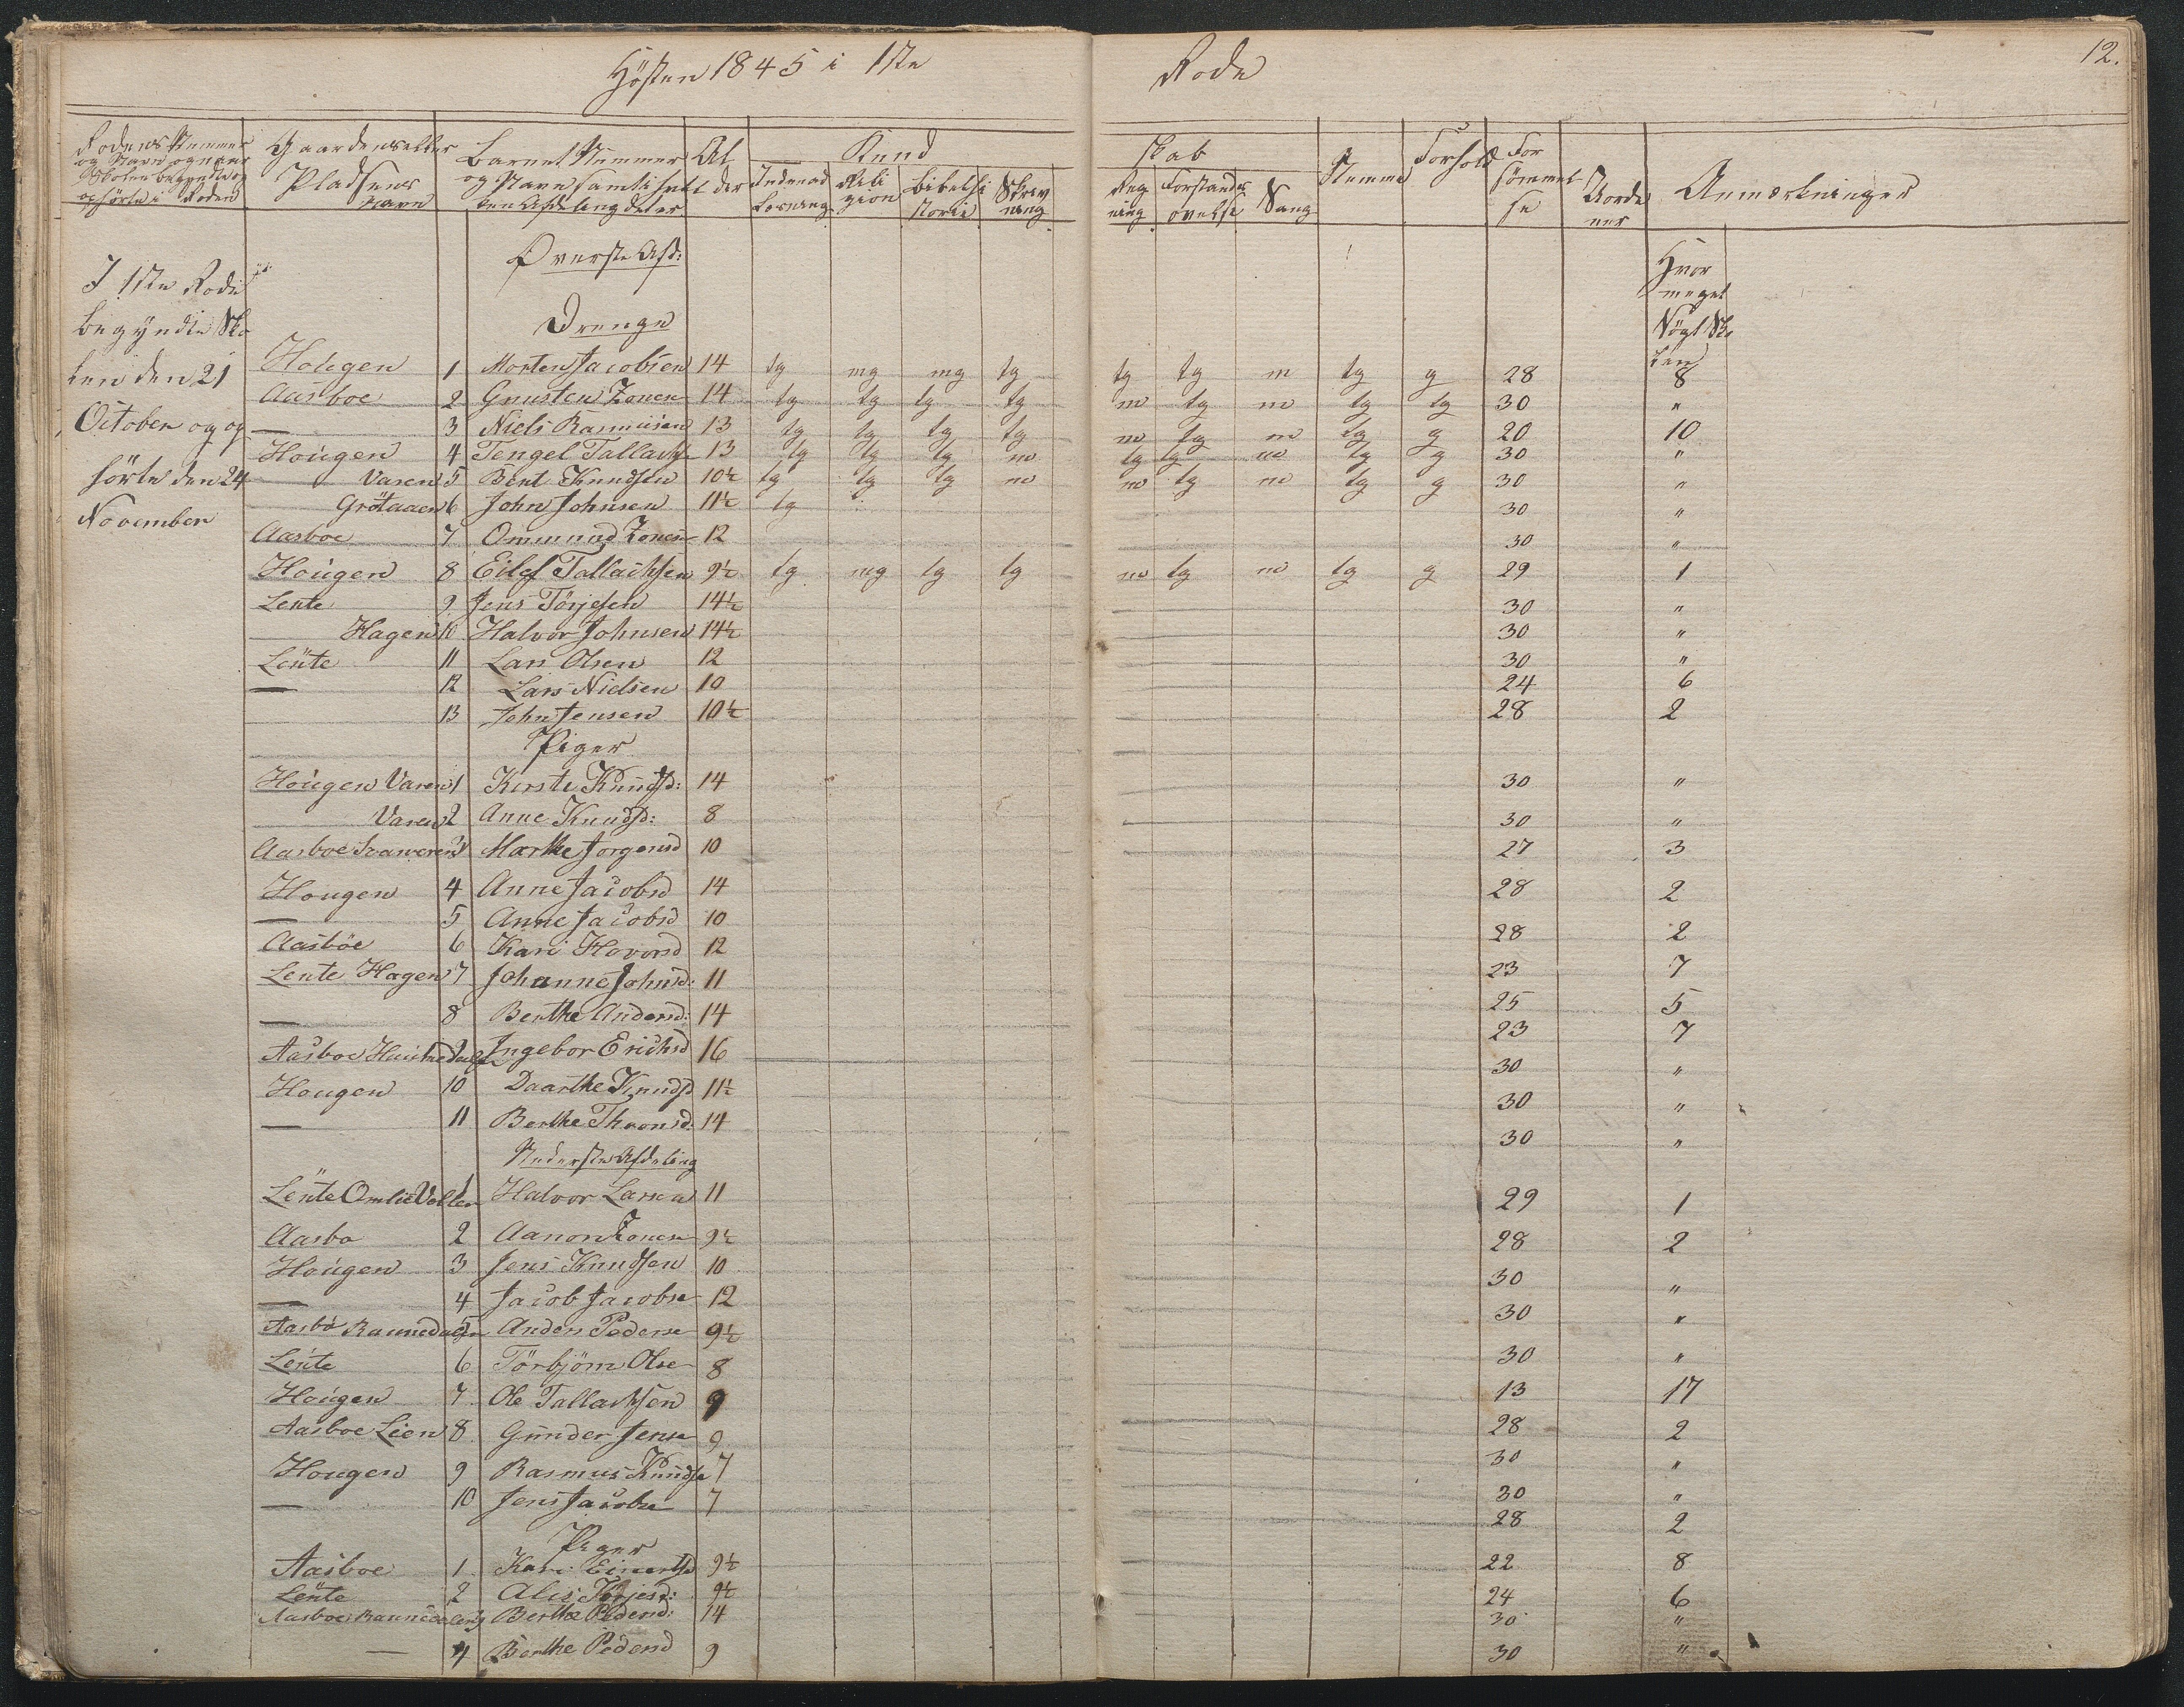 Hösten 1845 i 1ste Rode
12.
Rodens Nummer og Navn og naar Skolen begyndte og ophörte i Roden | Gaardens eller Pladsens Navn | Barnets Nummer og Navn samt i hvilken Afdeling det er | Alder | Kundskab: Indenad Læsning | Religion | Bibelhistorie | Skrivning | Regning | Forstandsövelse | Sang | Nemme | Forhold | Forsömmelse | Anmærkninger
Överste Afd:
I 1ste Rode
begyndte Sko
len den 21
October og op
hörte den 24
November
Hvor
meget
Sögt Sko
len
Drenge
Hougen 1 Morten Jacobsen 14 tg mg mg tg tg tg m tg g 28 8
Aasboe 2 Gunsten Zonen 14 tg tg tg tg m tg m tg tg 30 "
— 3 Niels Rasmusen 13 tg tg tg tg m tg m tg g 20 10
Hougen 4 Tengel Tallachs 13 tg tg tg m tg tg m tg g 30 "
Varen 5 Bent Knudsen 10½ tg tg tg m m tg m tg g 30 "
Grötaaen 6 John Johnsen 11½ tg 30 "
Aasboe 7 Ommund Zonesn 12 30 "
Hougen 8 Eilef Tallachsen 9½ tg mg tg tg m tg m tg g 29 1
Lente 9 Jens Törjesen 14½ 30 "
Hagen 10 Halvor Johnsen 14½ 30 "
Lente 11 Lars Olsen 12 30 "
— 12 Lars Nielsen 10 24 6
13 John Jensen 10½ 28 2
Piger
Hougen Varen 1 Kirste Knudsd: 14 30 "
Varen 2 Anne Knudsd: 8 30 "
Aasboe 3 Marthe Jorgensd 10 27 3
Hougen 4 Anne Jacobsd 14 28 2
— 5 Anne Jacobsd 10 28 2
Aasböe 6 Kari Hovorsd 12 23 7
Lente Hagen 7 Johanne Johnsd: 11 25 5
— 8 Berthe Andersd: 14 23 7
Aasboe 9 Ingebor Erichsd 16 30 "
Hougen 10 Daarthe Knudsd 11½ 30 "
— 11 Berthe Thronsd: 14 30 "
Nederste Afdeling
Lente Omlie Vollen 1 Halvor Larsen 11 29 1
Aasbo 2 Aanon Zonesn 9½ 28 2
Hougen 3 Jens Knudsen 10 30 "
— 4 Jacob Jacobse 12 30 "
Aasbö Rannedalen 5 Anders Pederse 9½ 30 "
Lente 6 Törbjörn Olse 8 13 17
Hougen 7 Ole Tallachsen 9 28 2
Aasboe Lien 8 Gunder Jense 9 30 "
Hougen 9 Rasmus Knudse 7 30 "
— 10 Jens Jacobse 7 28 2
Piger
Aasboe 1 Kari Einertsd 9½ 22 8
Lente 2 Alis Törjesd: 9½ 24 6
Aasboe Rannedalen 3 Berthe Pedersd: 14 30 "
— 4 Berthe Pedersd 9 30 "